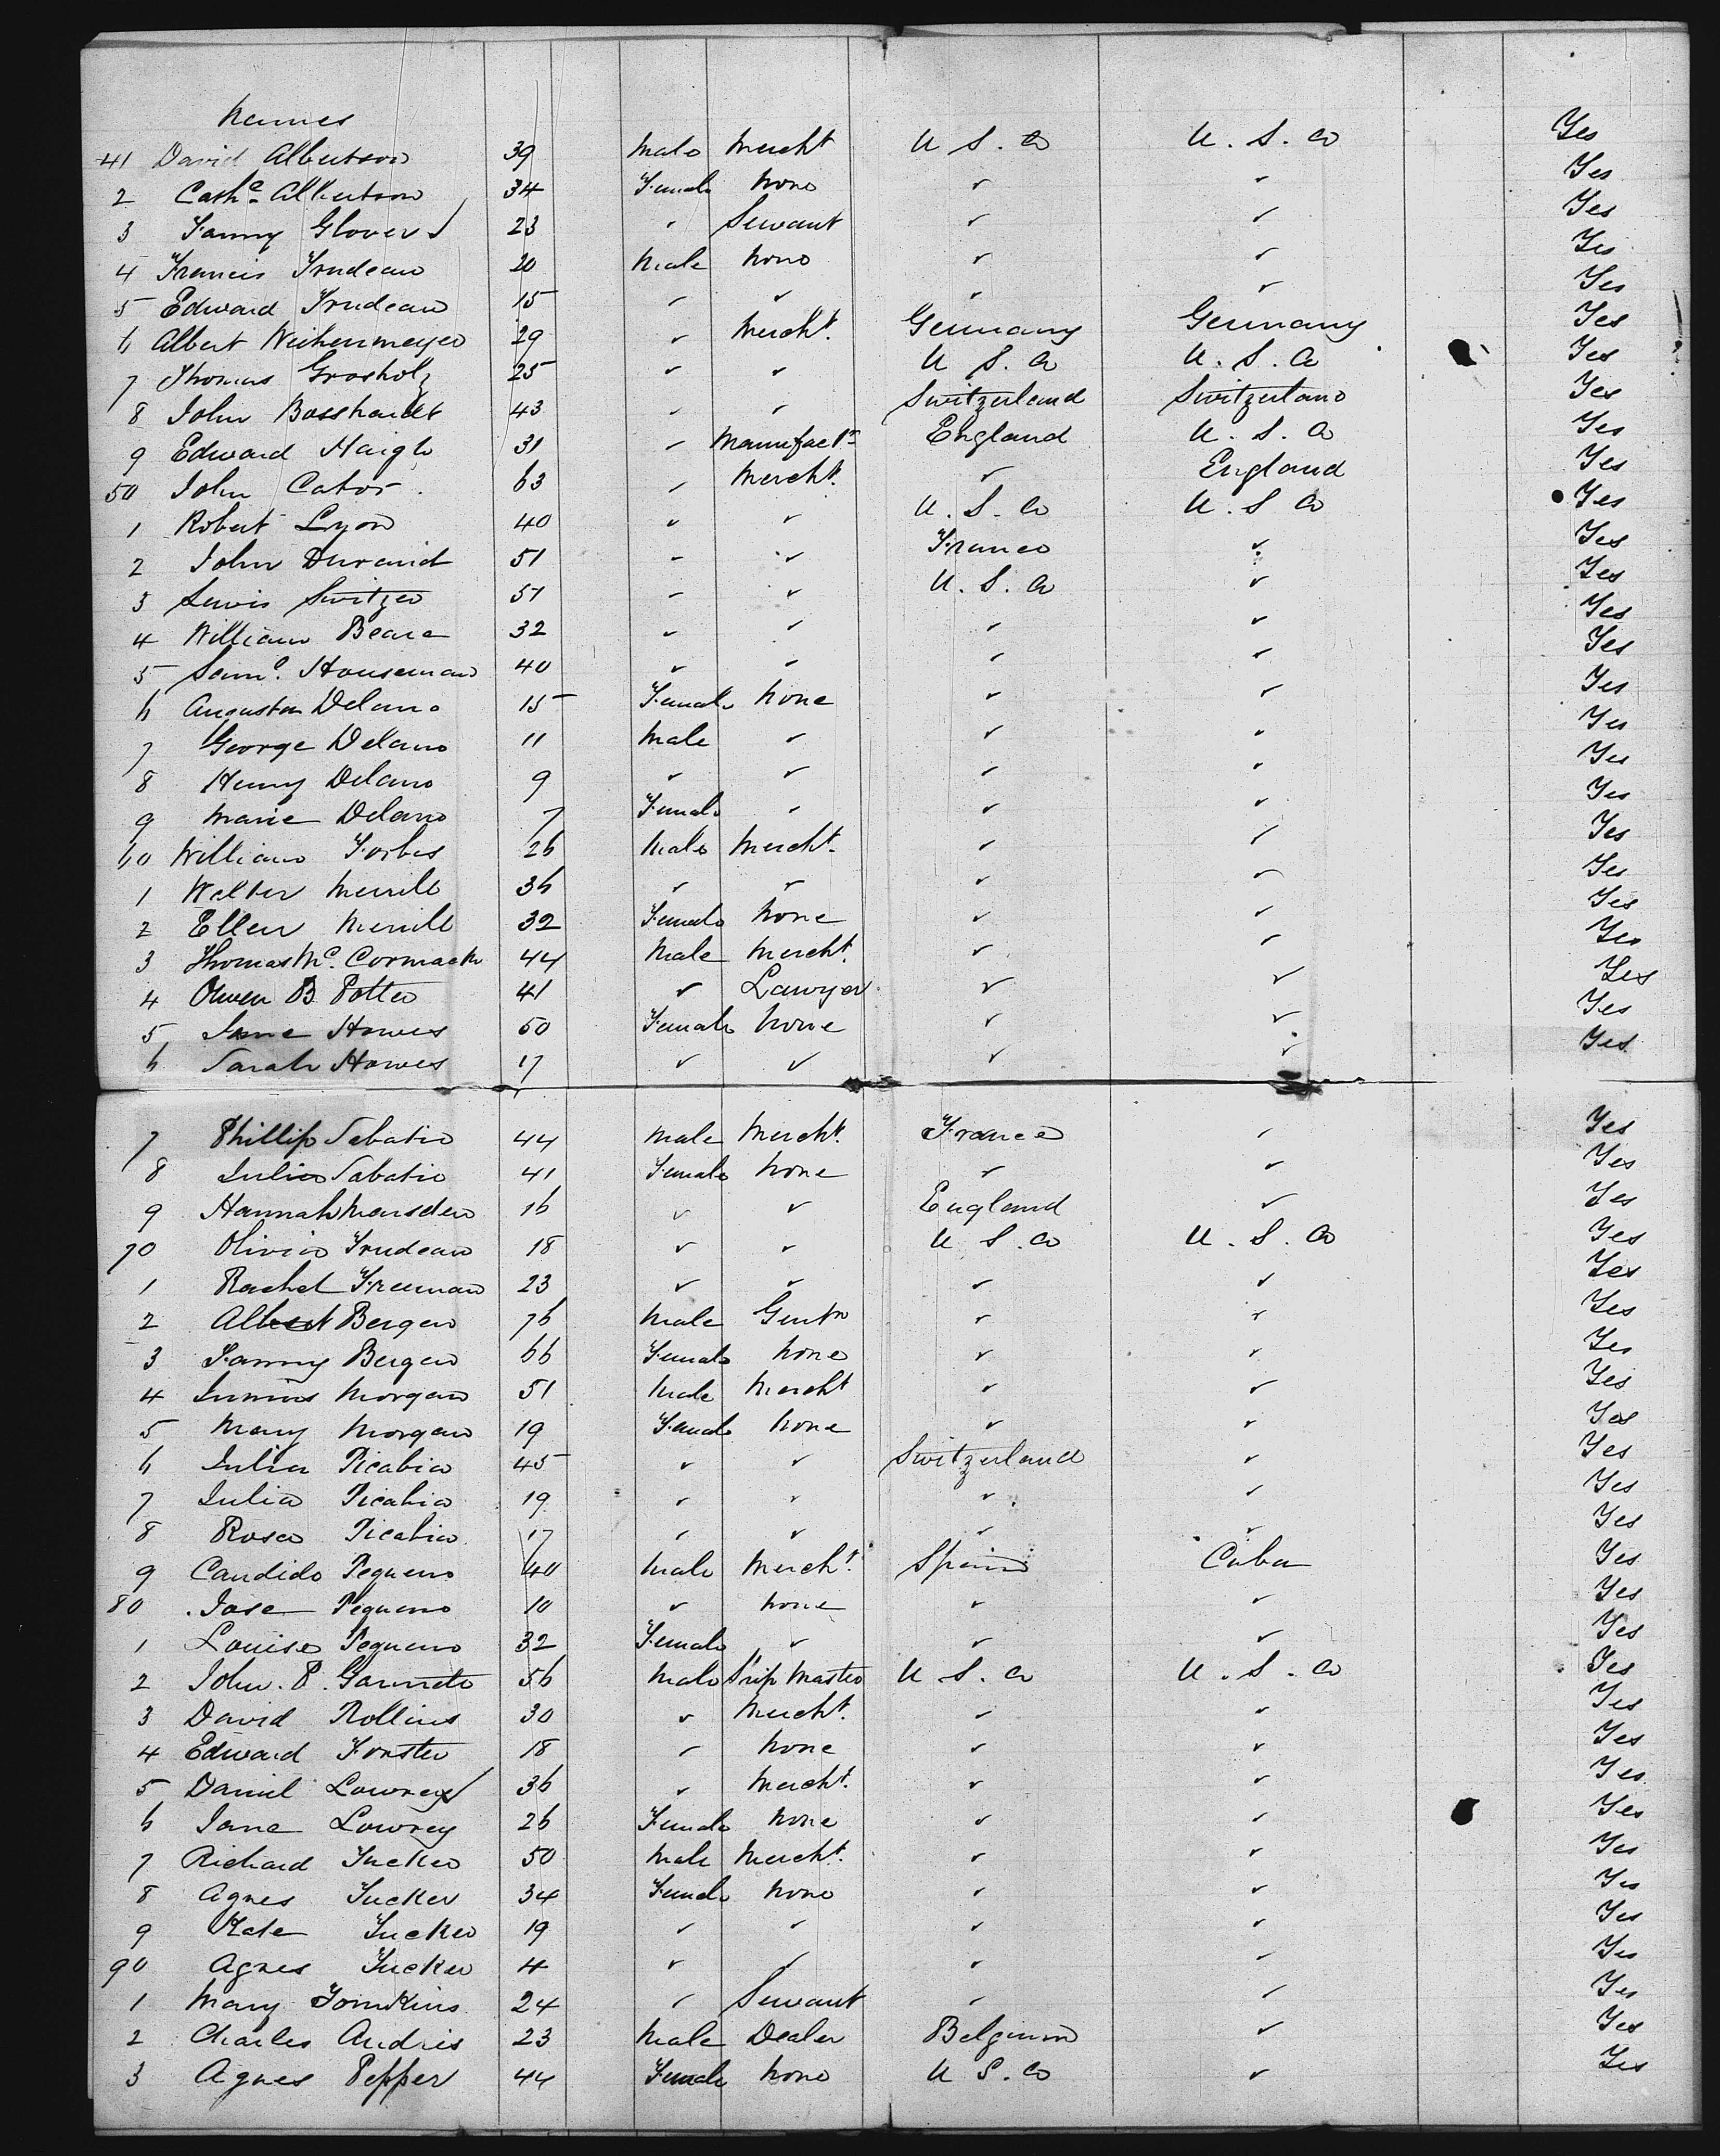 Names
41 David Albertson 39 Male Mercht U S. A U. S. A Yes
2 Cathe Albertson 34 Female None ✓ ✓ Yes
3 Fanny Glover 23 ✓ Servant ✓ ✓ Yes
4 Francis Trudeau 20 Male None ✓ ✓ Yes
5 Edward Trudeau 15 ✓ ✓ ✓ ✓ Yes
6 Albert 29 ✓ Mercht. Germany Germany Yes
7 Thomas Grosholz 25 ✓ ✓ U S. A U. S. A Yes
8 John Bosshardt 43 ✓ ✓ Switzerland Switzerland Yes
9 Edward Haigh 31 ✓ Manufactr England U. S. A Yes
50 John Cator 63 ✓ Mercht. ✓ England Yes
1 Robert Lyon 40 ✓ ✓ U. S. A U. S A Yes
2 John Durand 51 ✓ ✓ France ✓ Yes
3 Lewis Switzer 51 ✓ ✓ U. S. A ✓ Yes
4 William Beare 32 ✓ ✓ ✓ ✓ Yes
5 Saml. Houseman 40 ✓ ✓ ✓ ✓ Yes
6 Augusta Delano 15 Female None ✓ ✓ Yes
7 George Delano 11 Male ✓ ✓ ✓ Yes
8 Henry Delano 9 ✓ ✓ ✓ ✓ Yes
9 Marie Delano 7 Female ✓ ✓ ✓ Yes
60 William Forbes 26 Male Mercht. ✓ ✓ Yes
1 Walter Merrill 36 ✓ ✓ ✓ ✓ Yes
2 Ellen Merrill 32 Female None ✓ ✓ Yes
3 Thomas Mc. Cormack 44 Male Mercht. ✓ ✓ Yes
4 Owen B Potter 41 ✓ Lawyer ✓ ✓ Yes
5 Jane Howes 50 Female None ✓ ✓ Yes
6 Sarah Howes 17 ✓ ✓ ✓ ✓ Yes
7 Phillip Sabatie 44 Male Mercht. France ✓ Yes
8 Julia Sabatie 41 Female None ✓ ✓ Yes
9 Hannah Marsden 16 ✓ ✓ England ✓ Yes
70 Olivia Trudeau 18 ✓ ✓ U S. A U. S. A Yes
1 Rachel Freeman 23 ✓ ✓ ✓ ✓ Yes
2 Albert Bergen 76 Male Gentn ✓ ✓ Yes
3 Fanny Bergen 66 Female None ✓ ✓ Yes
4 Junius Morgan 51 Male Mercht ✓ ✓ Yes
5 Mary Morgan 19 Female None ✓ ✓ Yes
6 Julia Picabia 45 ✓ ✓ Switzerland ✓ Yes
7 Julia Picabia 19 ✓ ✓ ✓ ✓ Yes
8 Rosa Picabia 17 ✓ ✓ ✓ ✓ Yes
9 Candido Pequeno 40 Male Mercht. Spain Cuba Yes
80 Jose Pequeno 10 ✓ None ✓ ✓ Yes
1 Louisa Pequeno 32 Female ✓ ✓ ✓ Yes
2 John. P. 56 Male Ship Master U. S. A U. S. A Yes
3 David Rollins 30 ✓ Mercht. ✓ ✓ Yes
4 Edward Forster 18 ✓ None ✓ ✓ Yes
5 Daniel Lowrey 36 ✓ Mercht. ✓ ✓ Yes
6 Jane Lowrey 26 Female None ✓ ✓ Yes
7 Richard Tucker 50 Male Mercht. ✓ ✓ Yes
8 Agnes Tucker 34 Female None ✓ ✓ Yes
9 Kate Tucker 19 ✓ ✓ ✓ ✓ Yes
90 Agnes Tucker 4 ✓ ✓ ✓ ✓ Yes
1 Mary Tomkins 24 ✓ Servant ✓ ✓ Yes
2 Charles Andris 23 Male Dealer Belgium ✓ Yes
3 Agnes Pepper 44 Female None U S. A ✓ Yes